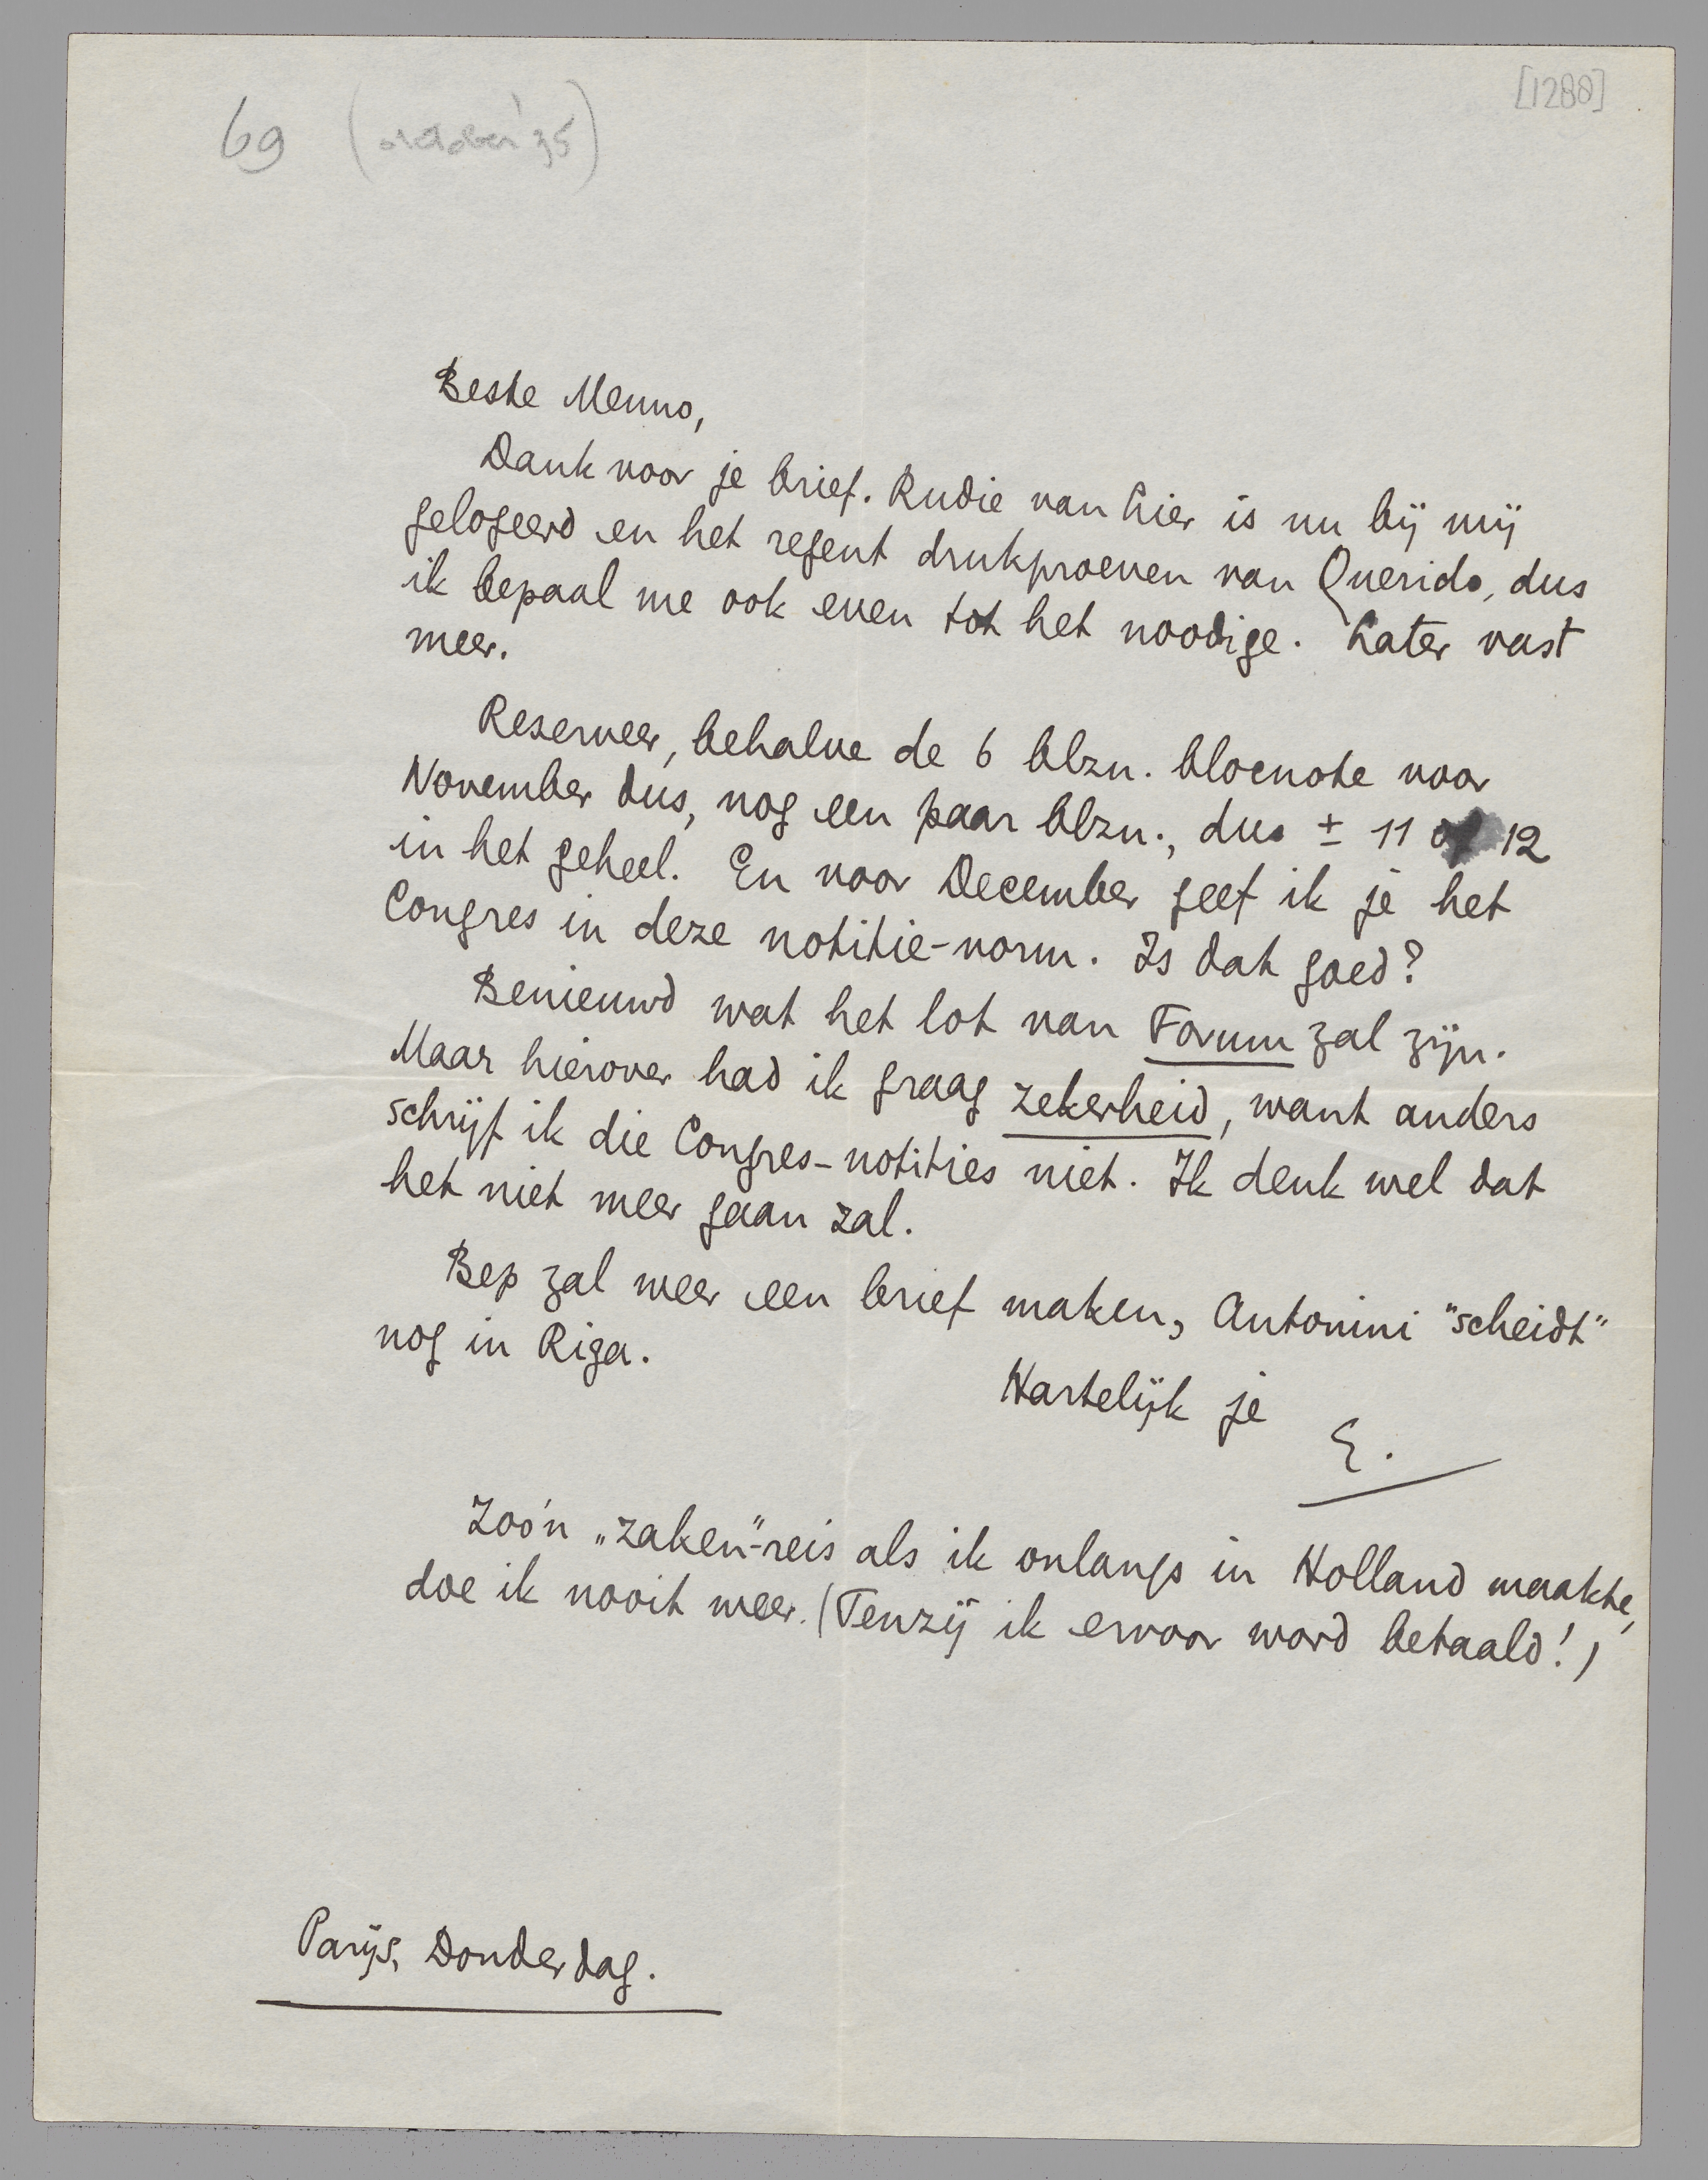 [1288]
69 (october '35)
Beste Menno,
Dank voor je brief. Rudie van Lier is nu bij mij
gelogeerd en het regent drukproeven van Querido, dus
ik bepaal me ook even tot het noodige. Later vast
meer.
Reserveer, behalve de 6 blzn. blocnote voor
November dus, nog een paar blzn., dus ± 11 of 12
in het geheel. En voor December geef ik je het
Congres in deze notitie-vorm. Is dat goed?
Benieuwd wat het lot van Forum zal zijn.
Maar hierover had ik graag zekerheid, want anders
schrijf ik die Congres-notities niet. Ik denk wel dat
het niet meer gaan zal.
Bep zal weer een brief maken, Antonini "scheidt"
nog in Riga.
Hartelijk je
E.
Zoo'n „zaken"-reis als ik onlangs in Holland maakte,
doe ik nooit weer. (Tenzij ik ervoor word betaald!)
Parijs, Donderdag.